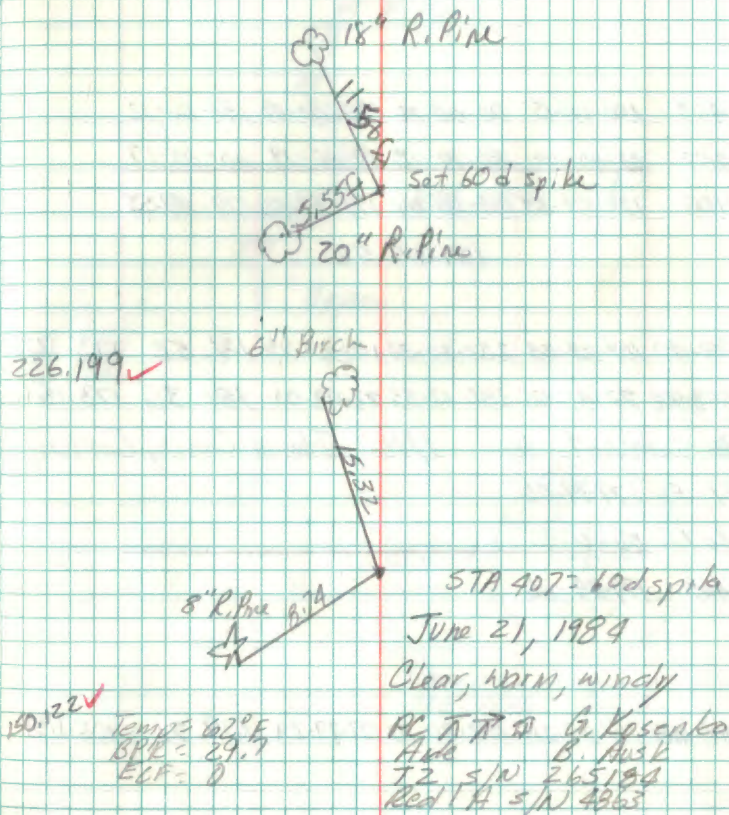 18" R. Pine
11.58 ft
Set 60 d spike
5.55 ft
20" R. Pine
6" Birch
226.199
15.32
STA 407 = 60d spike
8" R. Pine
8.74
June 21, 1984
Clear, warm, windy
150.122
Temp = 62°F
BPR = 29.7
ECF = 0
PC G. Kosenko
B. Ausk
T2 S/N 265184
Red 1A S/N 4863